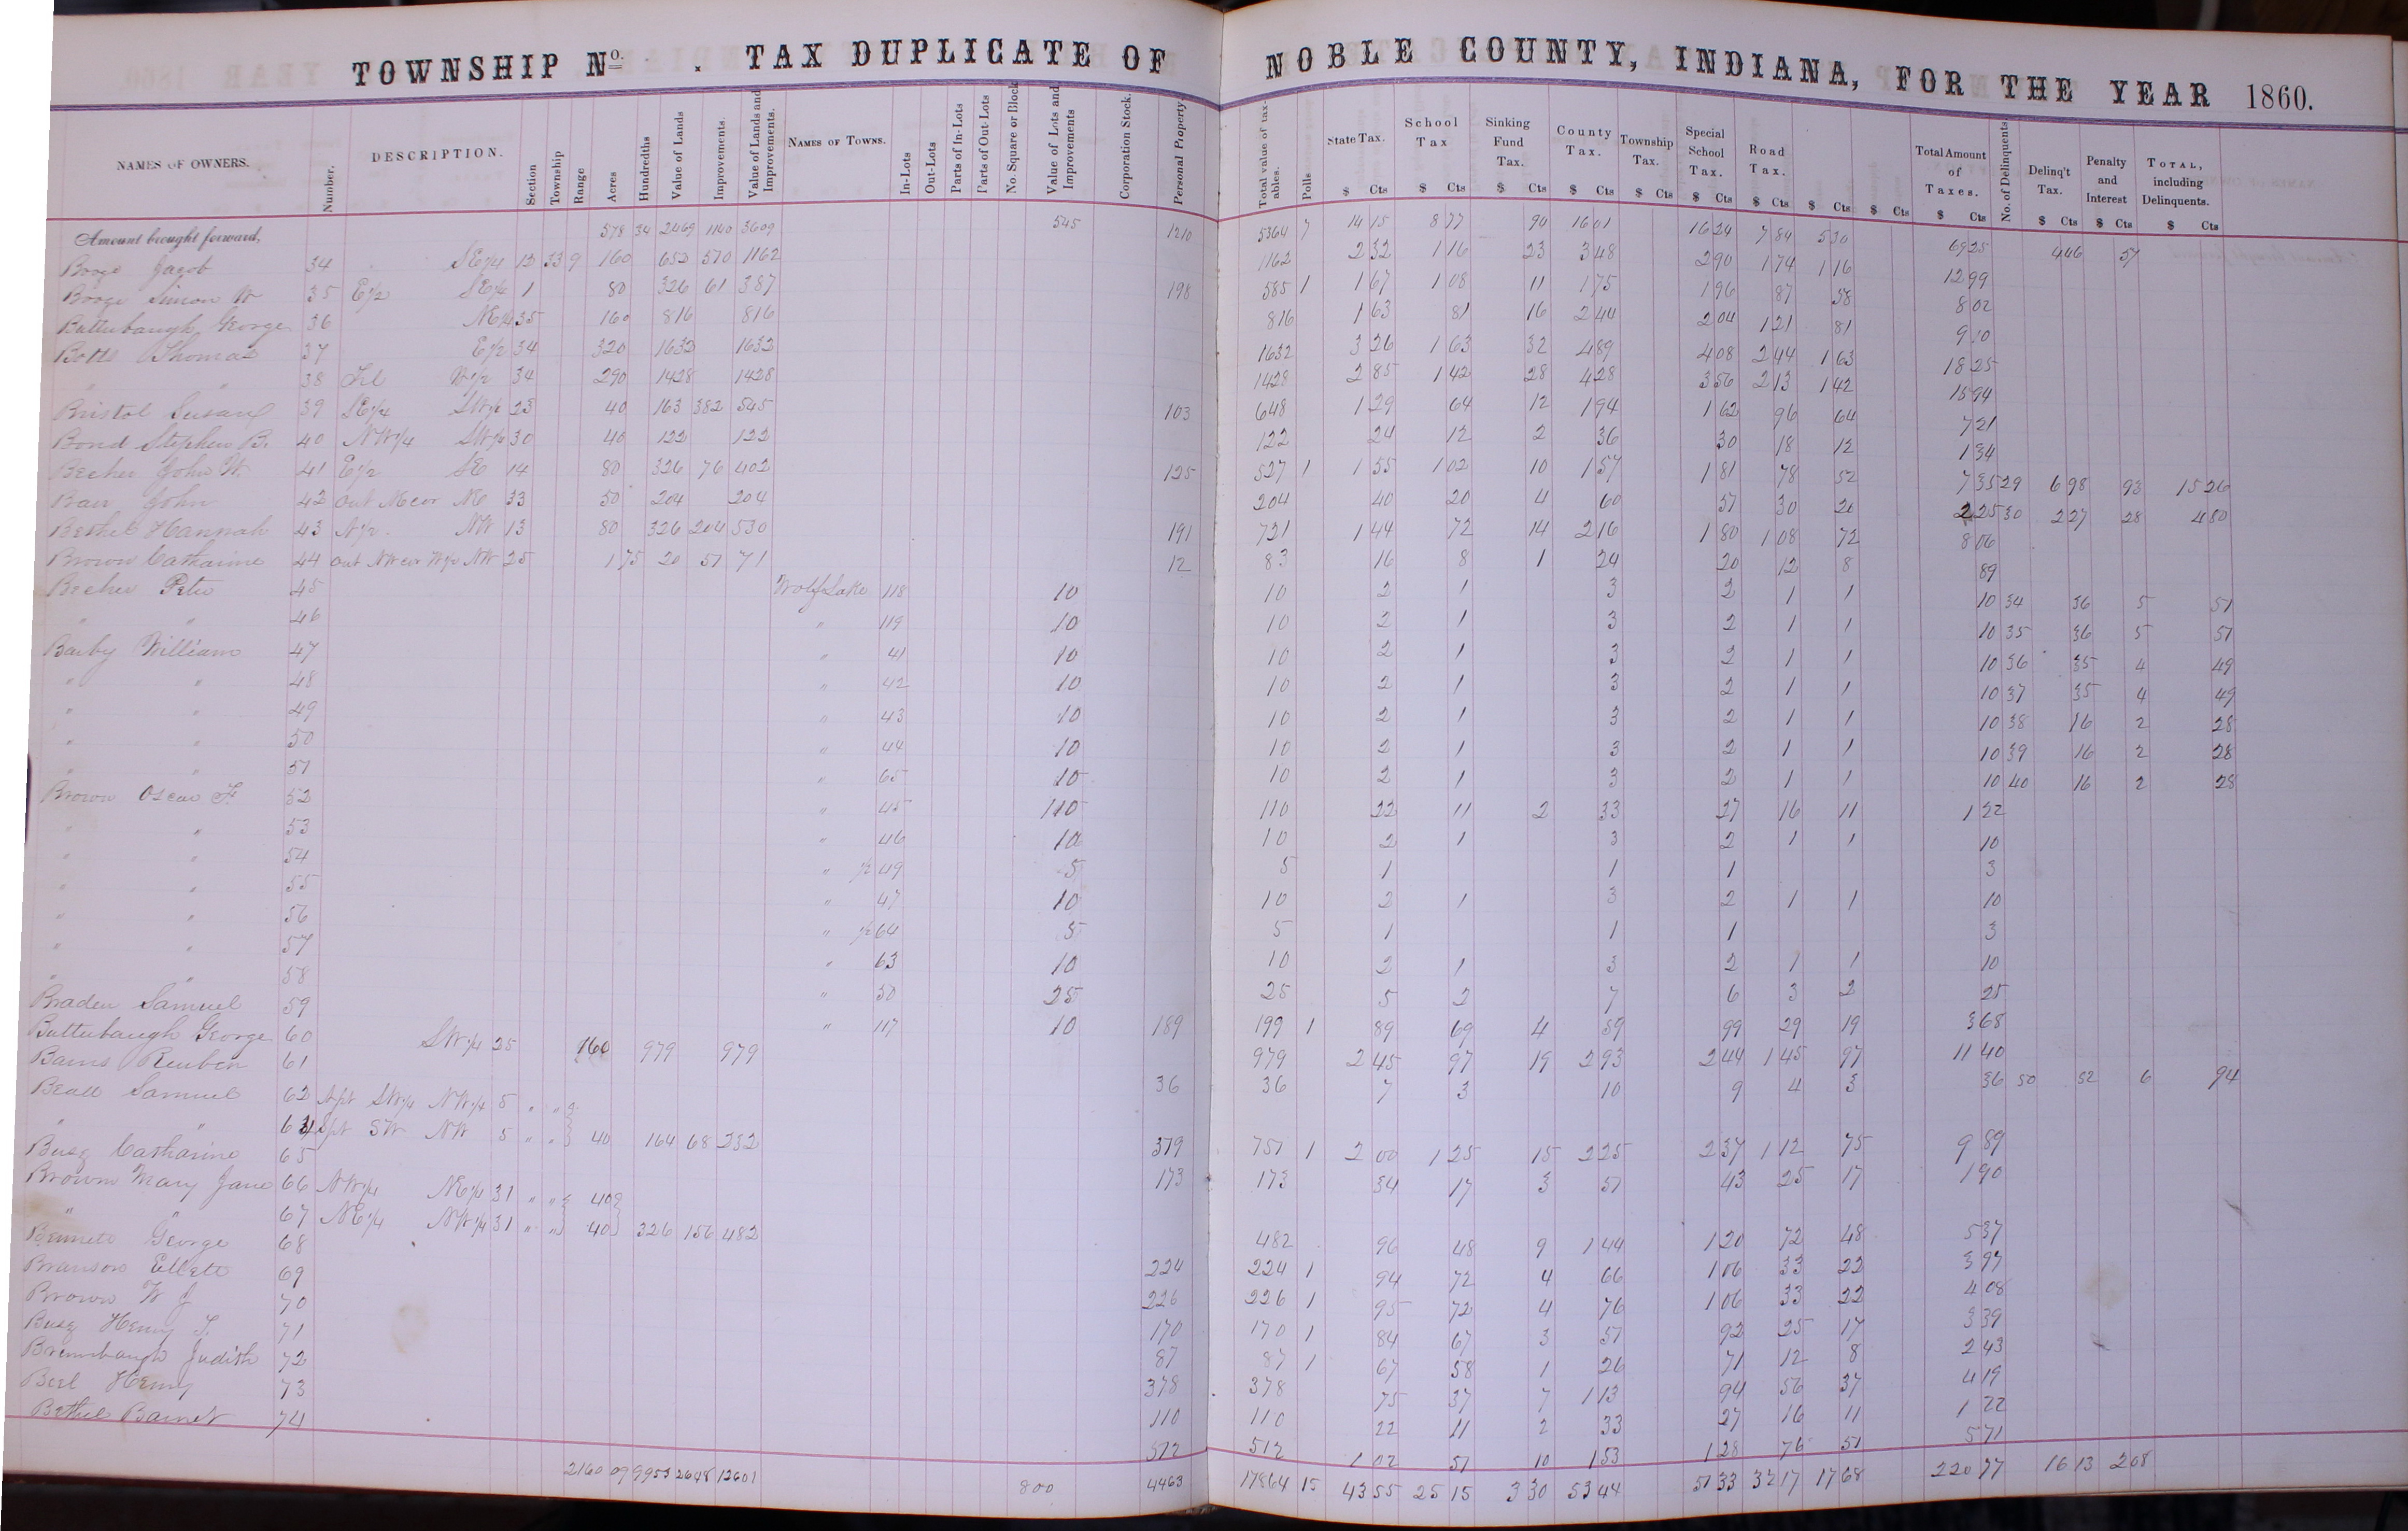 TOWNSHIP No. . TAX DUPLICATE OF NOBLE COUNTY, INDIANA, FOR THE YEAR 1860.
NAMES OF OWNERS. Number. DESCRIPTION. Section Township Range Acres Hundredths Value of Lands Improvements. Value of Lands and Improvements. NAMES OF TOWNS. In-Lots Out-Lots Parts of In-Lots Parts of Out-Lots No. Square or Block Value of Lots and Improvements Corporation Stock. Personal Property. Total value of taxables. Polls State Tax. School Tax Sinking Fund Tax. County Tax. Township Tax. Special School Tax. Road Tax. Total Amount of Taxes. No. of Delinquents Delinq't Tax. Penalty and Interest TOTAL, including Delinquents.
$ Cts $ Cts $ Cts $ Cts $ Cts $ Cts $ Cts $ Cts $ Cts $ Cts $ Cts $ Cts $ Cts
Amount brought forward, 578 34 2469 1140 3609 545 1210 5364 7 14 15 8 77 90 16 01 16 24 7 84 5 30 69 25 4 46 57
Jacob 34 SE1/4 12 33 9 160 652 510 1162 1162 2 32 1 16 23 3 48 2 90 1 74 1 16 12 99
Simon W 35 E1/2 SE1/4 1 80 326 61 387 198 585 1 1 67 1 08 11 1 75 1 96 87 58 8 02
Butterbaugh George 36 NE1/4 35 160 816 816 816 1 63 81 16 2 44 2 04 1 21 81 9 10
Botts Thomas 37 E1/2 34 320 1632 1632 1632 3 26 1 63 32 4 89 4 08 2 44 1 63 18 25
" " 38 W1/2 34 290 1428 1428 1428 2 85 1 42 28 4 28 3 56 2 13 1 42 15 94
Bristol Susan 39 SE1/4 SW1/4 23 40 163 382 545 103 648 1 29 64 12 1 94 1 62 96 64 7 21
Bond Stephen B. 40 NW1/4 SW1/4 30 40 122 122 122 24 12 2 36 30 18 12 1 34
Becher John W. 41 E1/2 SE 14 80 326 76 402 125 527 1 1 55 1 02 10 1 57 1 81 78 52 7 35 29 6 98 93 15 26
Barr John 42 out NE cor NE 33 50 204 204 204 40 20 4 60 51 30 20 2 25 30 2 27 28 4 80
Bethel Hannah 43 N1/2 NW 13 80 326 204 530 191 721 1 44 72 14 2 16 1 80 1 08 72 8 06
Brown Catharine 44 out NW cor W1/2 NW 25 1 75 20 51 71 12 83 16 8 1 24 20 12 8 89
Becher Peter 45 Wolf Lake 118 10 10 2 1 3 2 1 1 10 34 36 5 51
" " 46 " 119 10 10 2 1 3 2 1 1 10 35 36 5 51
William 47 " 41 10 10 2 1 3 2 1 1 10 36 35 4 49
" " 48 " 42 10 10 2 1 3 2 1 1 10 37 35 4 49
" " 49 " 43 10 10 2 1 3 2 1 1 10 38 16 2 28
" " 50 " 44 10 10 2 1 3 2 1 1 10 39 16 2 28
" " 51 " 65 10 10 2 1 3 2 1 1 10 40 16 2 28
Brown Oscar F. 52 " 45 110 110 22 11 2 33 27 16 11 1 22
" " 53 " 46 10 10 2 1 3 2 1 1 10
" " 54 " 1/2 49 5 5 1 1 1 3
" " 55 " 47 10 10 2 1 3 2 1 1 10
" " 56 " 1/2 64 5 5 1 1 1 3
" " 57 " 63 10 10 2 1 3 2 1 1 10
" " 58 " 50 25 25 5 2 7 6 3 2 25
Braden Samuel 59 " 117 10 189 199 1 89 69 4 59 99 29 19 3 68
Butterbaugh George 60 SW1/4 25 160 979 979 979 2 45 97 19 2 93 2 44 1 45 97 11 40
Reuben 61 36 36 7 3 10 9 4 3 36 50 52 6 94
Beall Samuel 62 SW1/4 NW1/4 5 " "
" " 64 SW NW 5 " " 40 164 68 232 379 751 1 2 00 1 25 15 2 25 2 37 1 12 75 9 89
Catharine 65 173 173 34 17 3 51 43 25 17 1 90
Brown Mary Jane 66 NW1/4 NE1/4 31 " " 40
" " 67 NE1/4 NW1/4 31 " " 40 326 156 482 482 96 48 9 1 44 1 20 72 48 5 37
George 68 224 224 1 94 72 4 66 1 06 33 22 3 97
69 226 226 1 95 72 4 76 1 06 33 22 4 08
Brown W J 70 170 170 1 84 67 3 51 92 25 17 3 39
Henry 71 87 87 1 67 58 1 26 71 12 8 2 43
Judith 72 378 378 75 37 7 1 13 94 56 37 4 19
Henry 73 110 110 22 11 2 33 27 16 11 1 22
Bethel 74 512 512 1 02 51 10 1 53 1 28 76 51 5 71
2160 09 9953 2648 12601 800 4463 17864 15 43 55 25 15 3 30 53 44 51 33 32 17 17 68 220 77 16 13 2 08